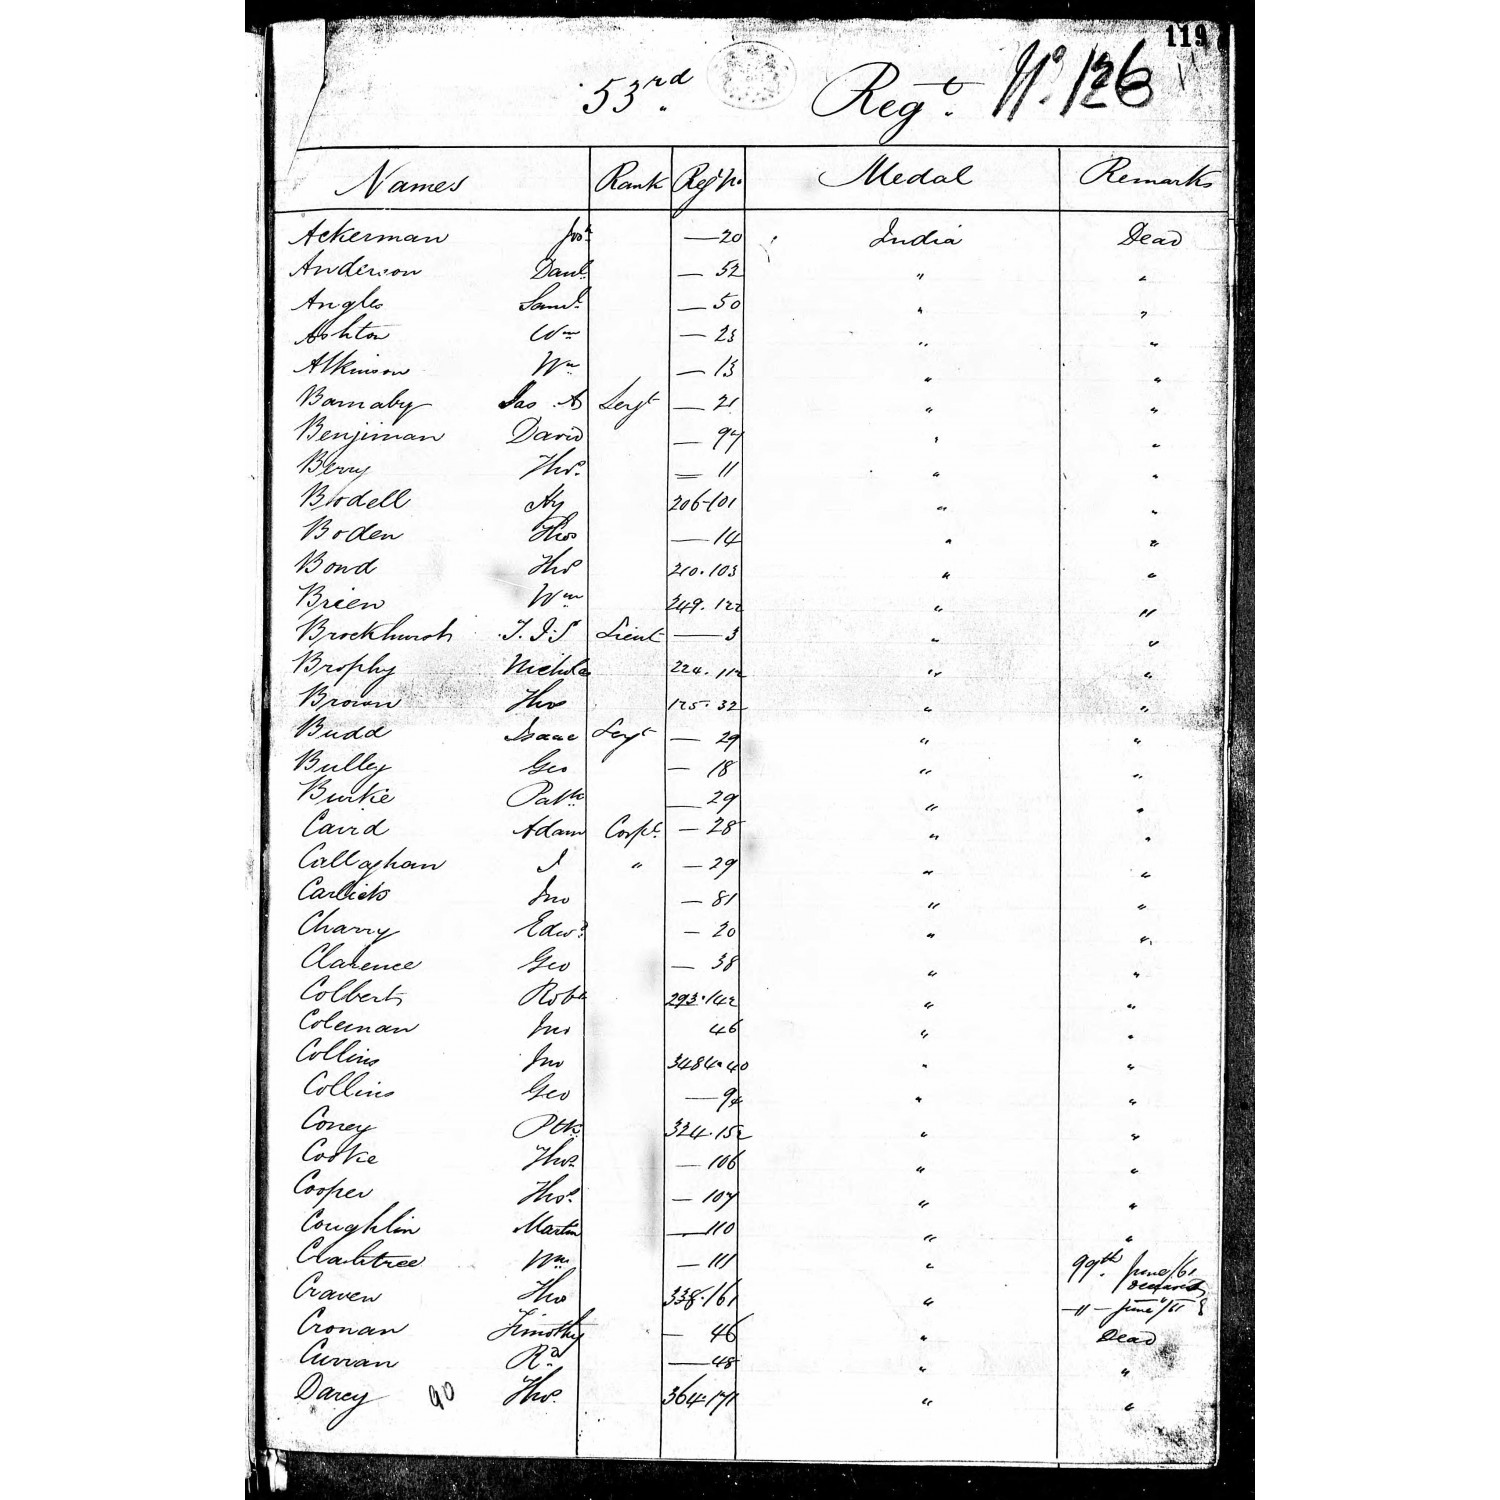 119
53rd Regt. No. 126
Names Rank Regt No. Medal Remarks
Ackerman Josh — 20 India Dead
Anderson Danl. — 52 " "
Angles Saml. — 50 " "
Ashton Wm — 23 " "
Atkinson Wm — 13 " "
Barnaby Jas A Sergt — 21 " "
Benjiman David — 97 " "
Berry Thos. — 11 " "
Bodell Hy 206-101 " "
Boden Thos — 14 " "
Bond Thos 210.103 " "
Brien Wm 249.122 " "
Brockhurst T. I. S Lieut — 3 " "
Brophy Nicholas 224.112 " "
Brown Thos 125.32 " "
Budd Isaac Sergt — 29 " "
Bulley Geo — 18 " "
Burke Patk — 29 " "
Caird Adam Corpl. — 28 " "
Callaghan J " — 29 " "
Carlick Jno — 81 " "
Charry Edwd — 20 " "
Clarence Geo — 38 " "
Colbert Robt 293.142 " "
Coleman Jno 46 " "
Collins Jno 3484.40 " "
Collins Geo — 94 " "
Coney Ptk. 324.152 " "
Cooke Thos. — 106 " "
Cooper Thos. — 107 " "
Coughlin Martin — 110 " "
Crabtree Wm — 111 " 99th June/61
Craven Thos 338.161 " — " — June/61
Cronan Timothy — 46 " Dead
Curran Rd — 48 " "
Darcy 90 Thos. 364.171 " "